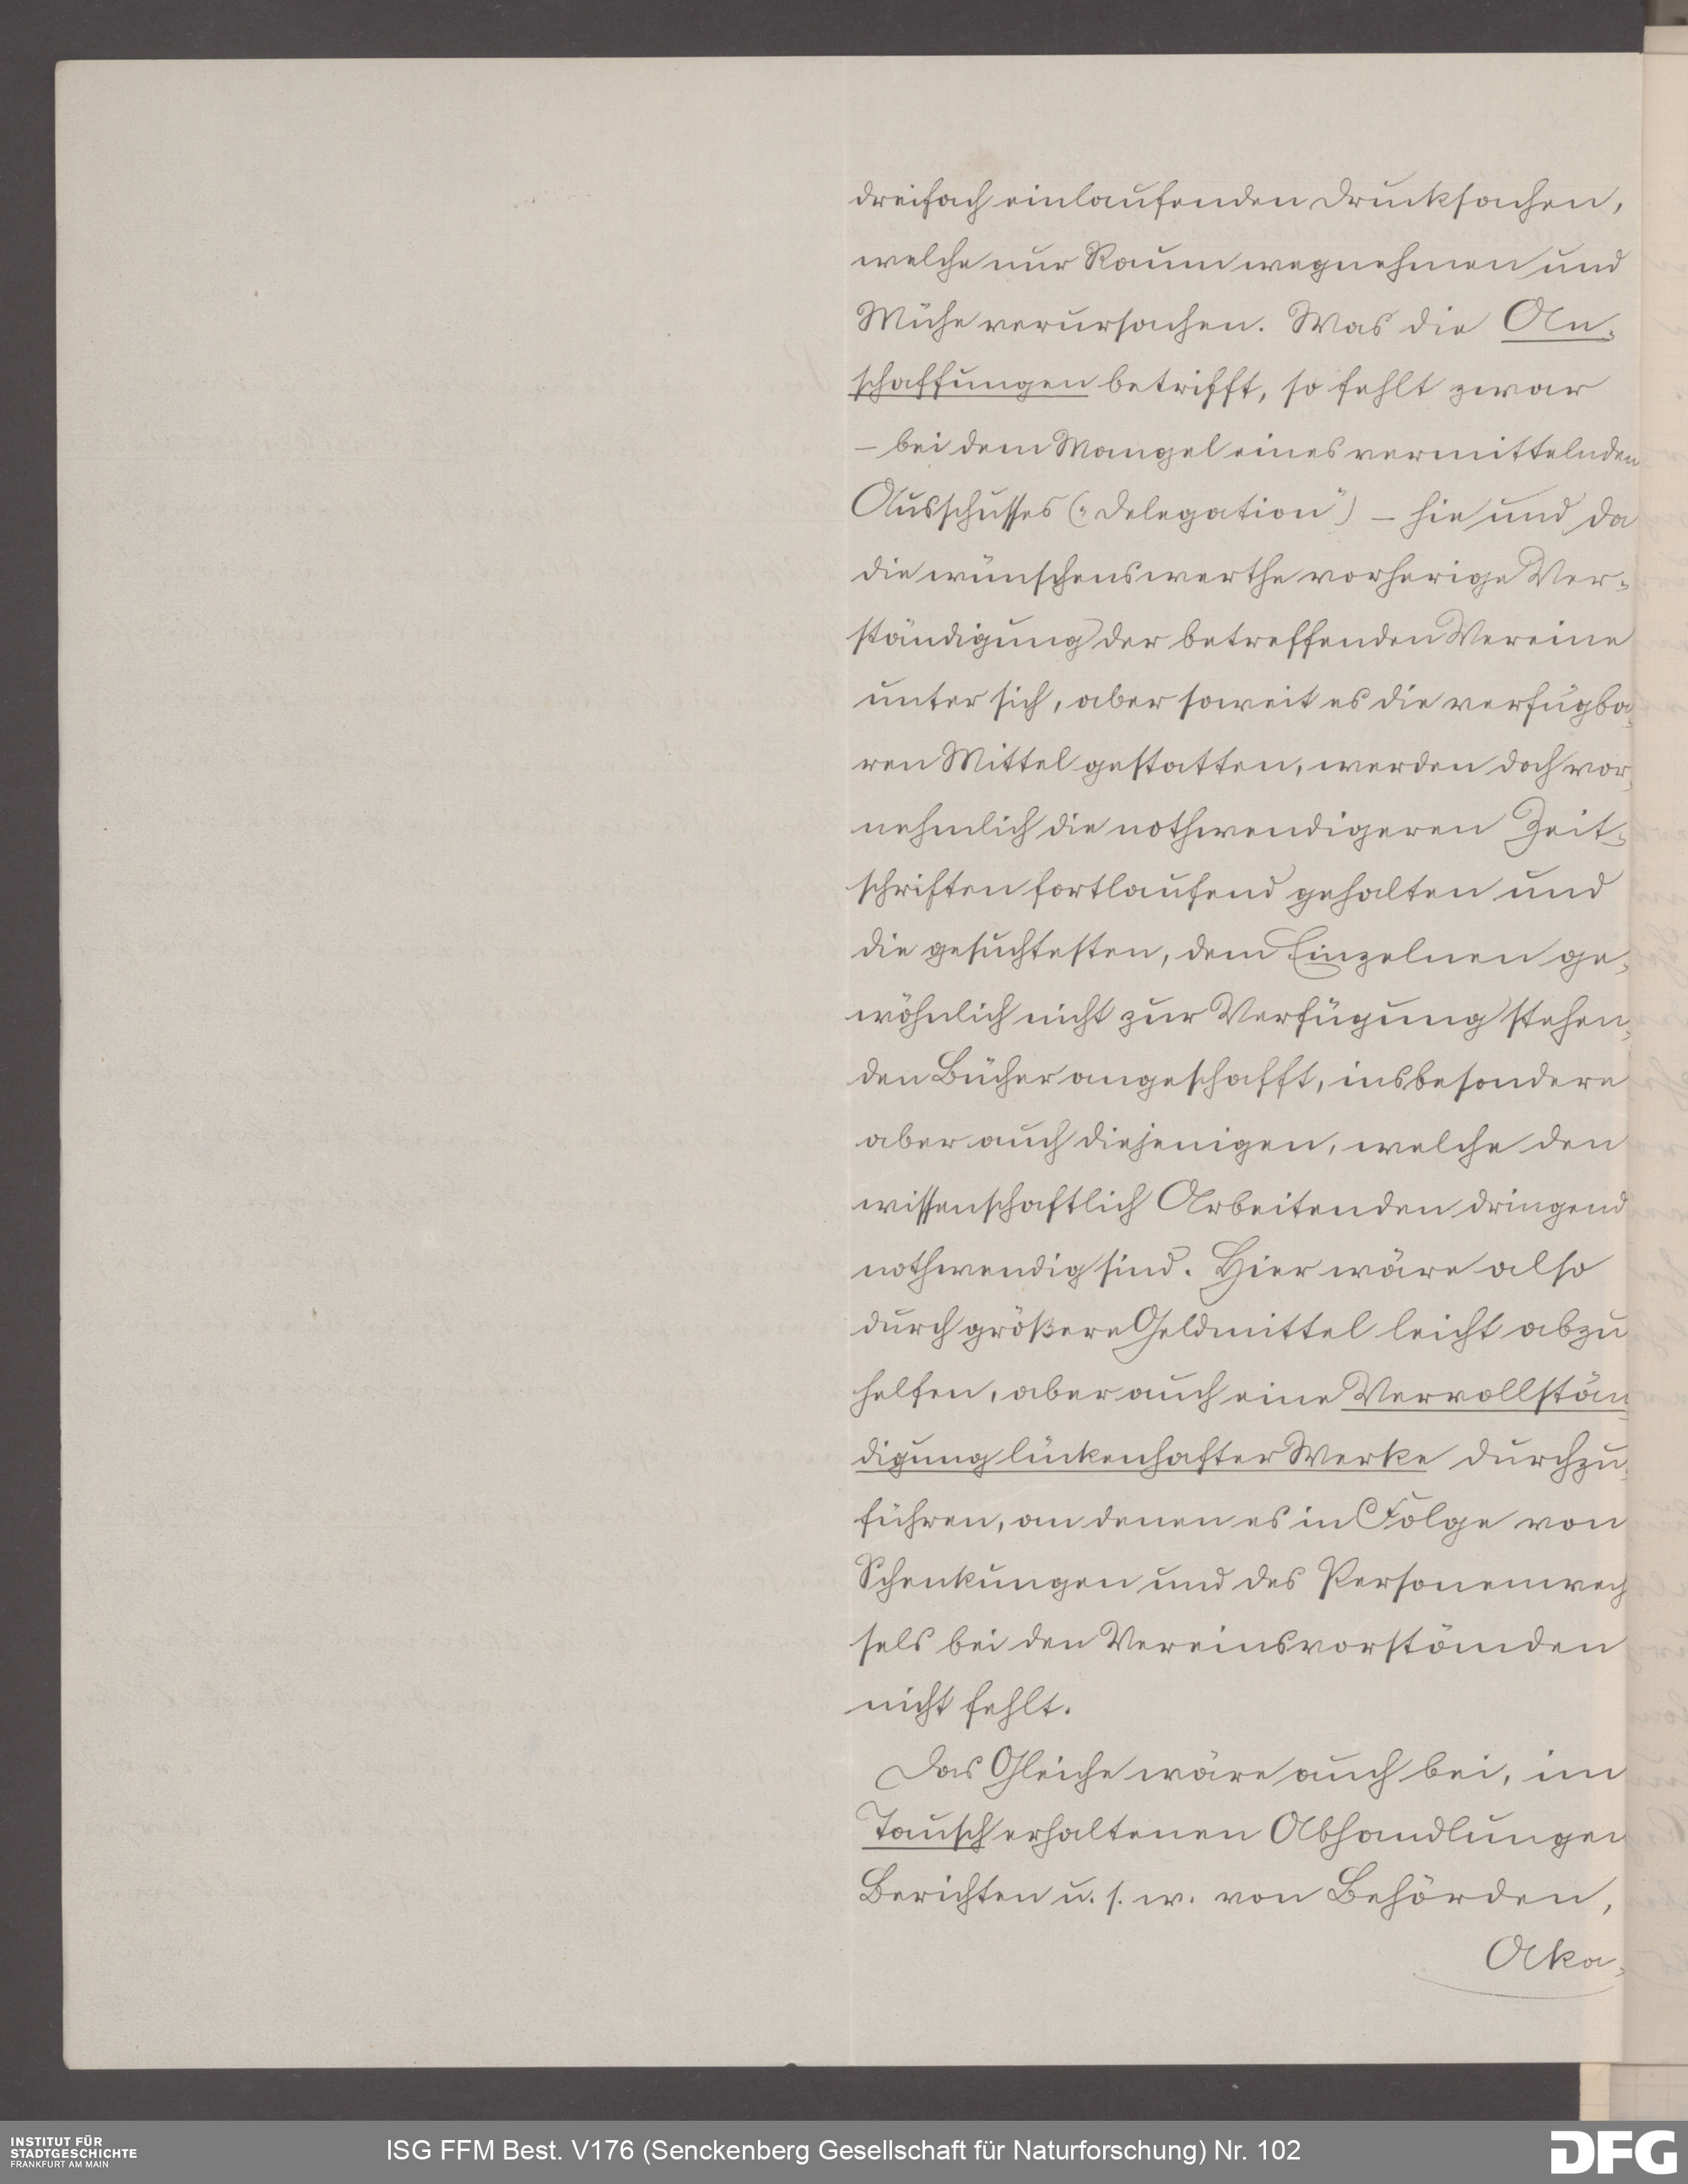 dreifach einlaufenden Drucksachen,
welche nur Raum wegnehmen und
Mühe verursachen. Was die An-
schaffungen betrifft, so fehlt zwar
– bei dem Mangel eines vermittelnden
Ausschusses („Delegation“) – hie und da
die wünschenswerthe vorherige Ver-
ständigung der betreffenden Vereine
unter sich, aber soweit es die verfügba-
ren Mittel gestatten, werden doch vor-
nehmlich die nothwendigeren Zeit-
schriften fortlaufend gehalten und
die gesuchtesten, dem Einzelnen ge-
wöhnlich nicht zur Verfügung stehen-
den Bücher angeschafft, insbesondere
aber auch diejenigen, welche den
wissenschaftlich Arbeitenden dringend
nothwendig sind. Hier wäre also
durch größere Geldmittel leicht abzu
helfen, aber auch eine Vervollstän-
digung lückenhafter Werke durchzu-
führen, an denen es in Folge von
Schenkungen und des Personenwech
sels bei den Vereinsvorständen
nicht fehlt.
Das Gleiche wäre auch bei, im
Tausch erhaltenen Abhandlungen
Berichten u. s. w. von Behörden,
Aka-
INSTITUT FÜR
STADTGESCHICHTE
FRANKFURT AM MAIN
ISG FFM Best. V176 (Senckenberg Gesellschaft für Naturforschung) Nr. 102
DFG